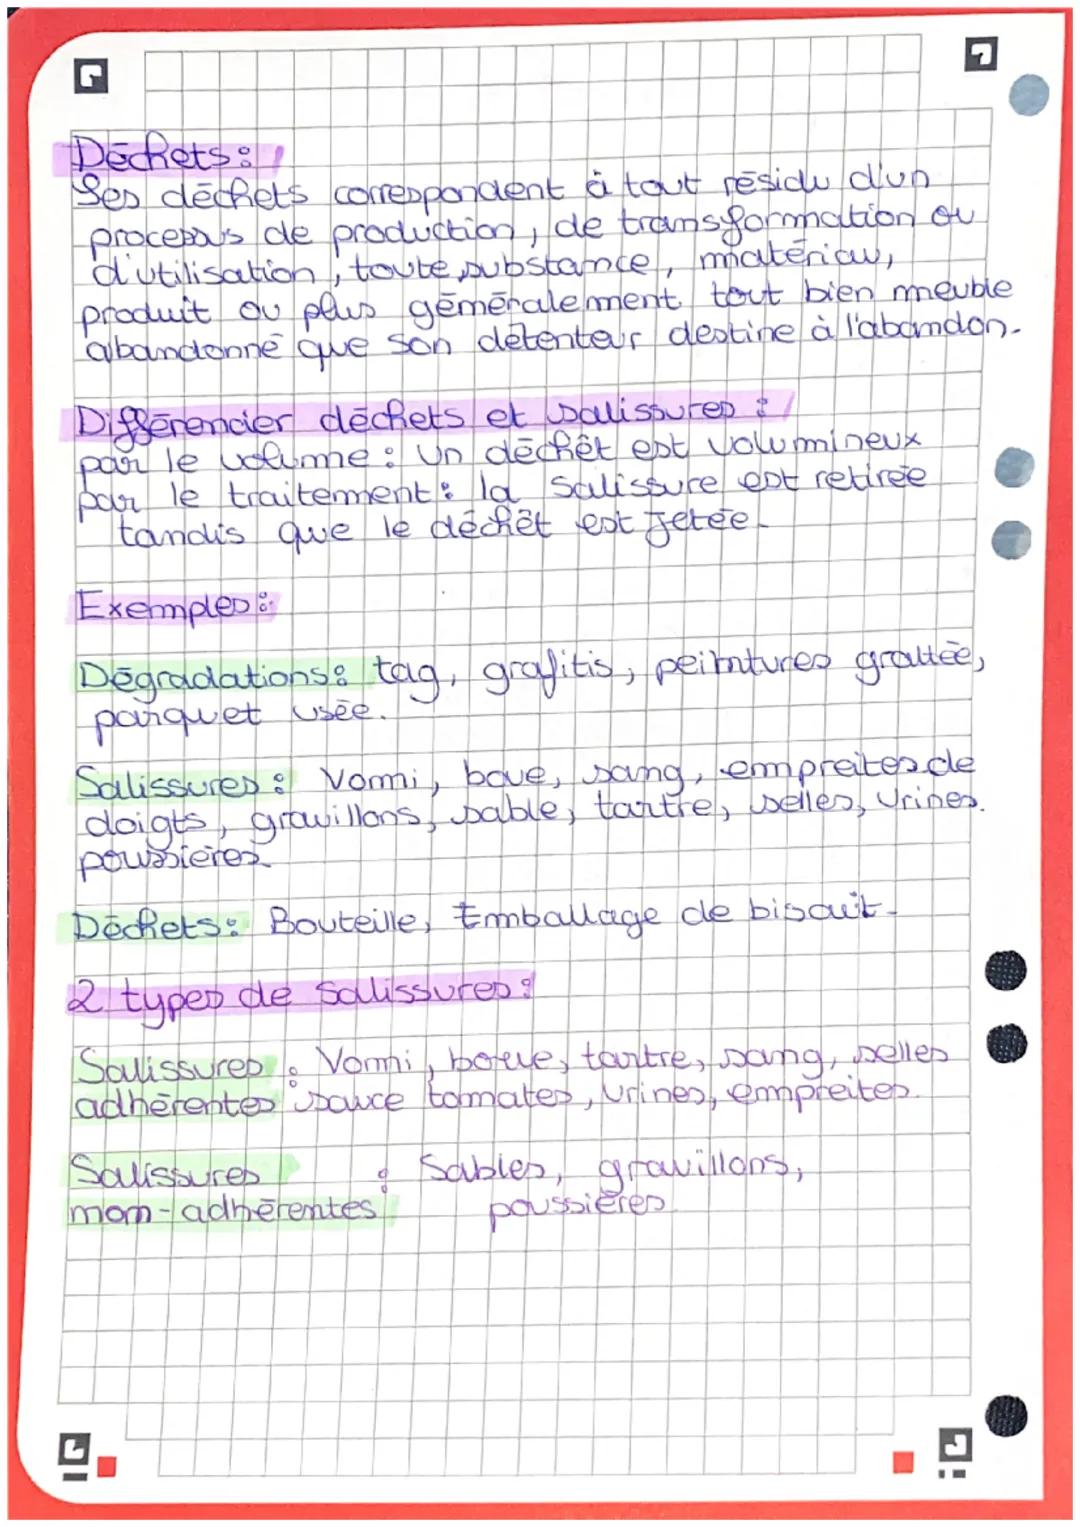 Déchets :
Les déchets correspondent à tout résidu d'un
processus de production, de transformation ou
d'utilisation, toute substance, matériau,
produit ou plus généralement tout bien meuble
abandonné que son détenteur destine à l'abandon.
Différencier déchets et salissures :
par le volume : Un déchêt est volumineux
par le traitement : la salissure est retirée
tandis que le déchêt est Jetée.
Exemples :
Dégradations : tag, grafitis, peintures grattée,
parquet usée.
Salissures : Vomi, boue, sang, empreites de
doigts, gravillons, sable, tartre, selles, Urines.
poussières
Déchets : Bouteille, Emballage de biscuit.
2 types de salissures :
Salissures : Vomi, boue, tartre, sang, selles
adhérentes sauce tomates, Urines, empreites.
Salissures : Sables, gravillons,
non-adhérentes poussières